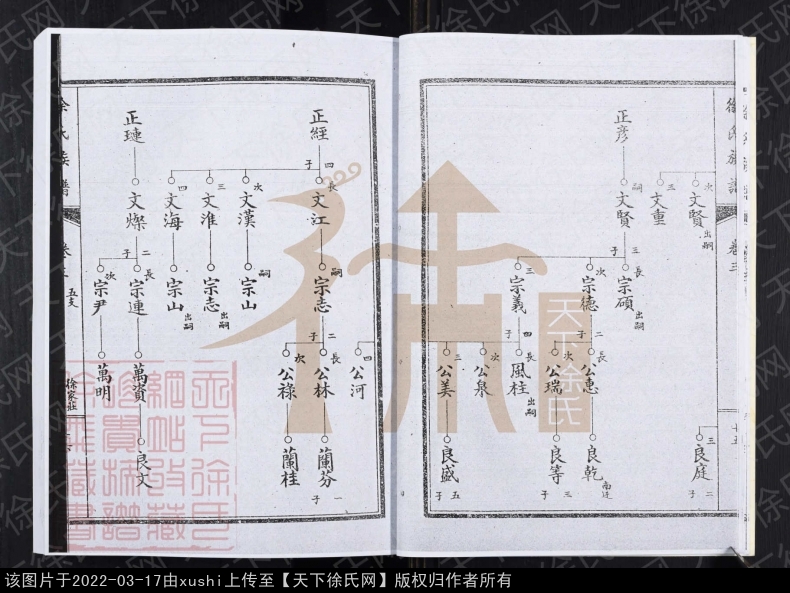 徐氏族譜
卷三
十五
次
文賢
出嗣
三
文重
三
良庭
二子
正彥
嗣
文賢
三子
長
宗碩
出嗣
次
宗德
三
宗義
二子
長
公惠
次
公瑞
良乾
南迁
良等
三子
四子
長
風桂
出嗣
次
公泉
三
公美
良盛
五子
四
公河
正經
四子
長
文江
次
文漢
三
文淮
四
文海
嗣
宗志
嗣
宗山
宗志
出嗣
宗山
出嗣
二子
長
公林
次
公祿
蘭芬
一子
蘭桂
正璉
文燦
二子
長
宗連
次
宗尹
萬資
萬明
良文
余氏族譜
五支
徐家莊
天下徐氏
天下徐氏网
该图片于2022-03-17由xushi上传至【天下徐氏网】版权归作者所有